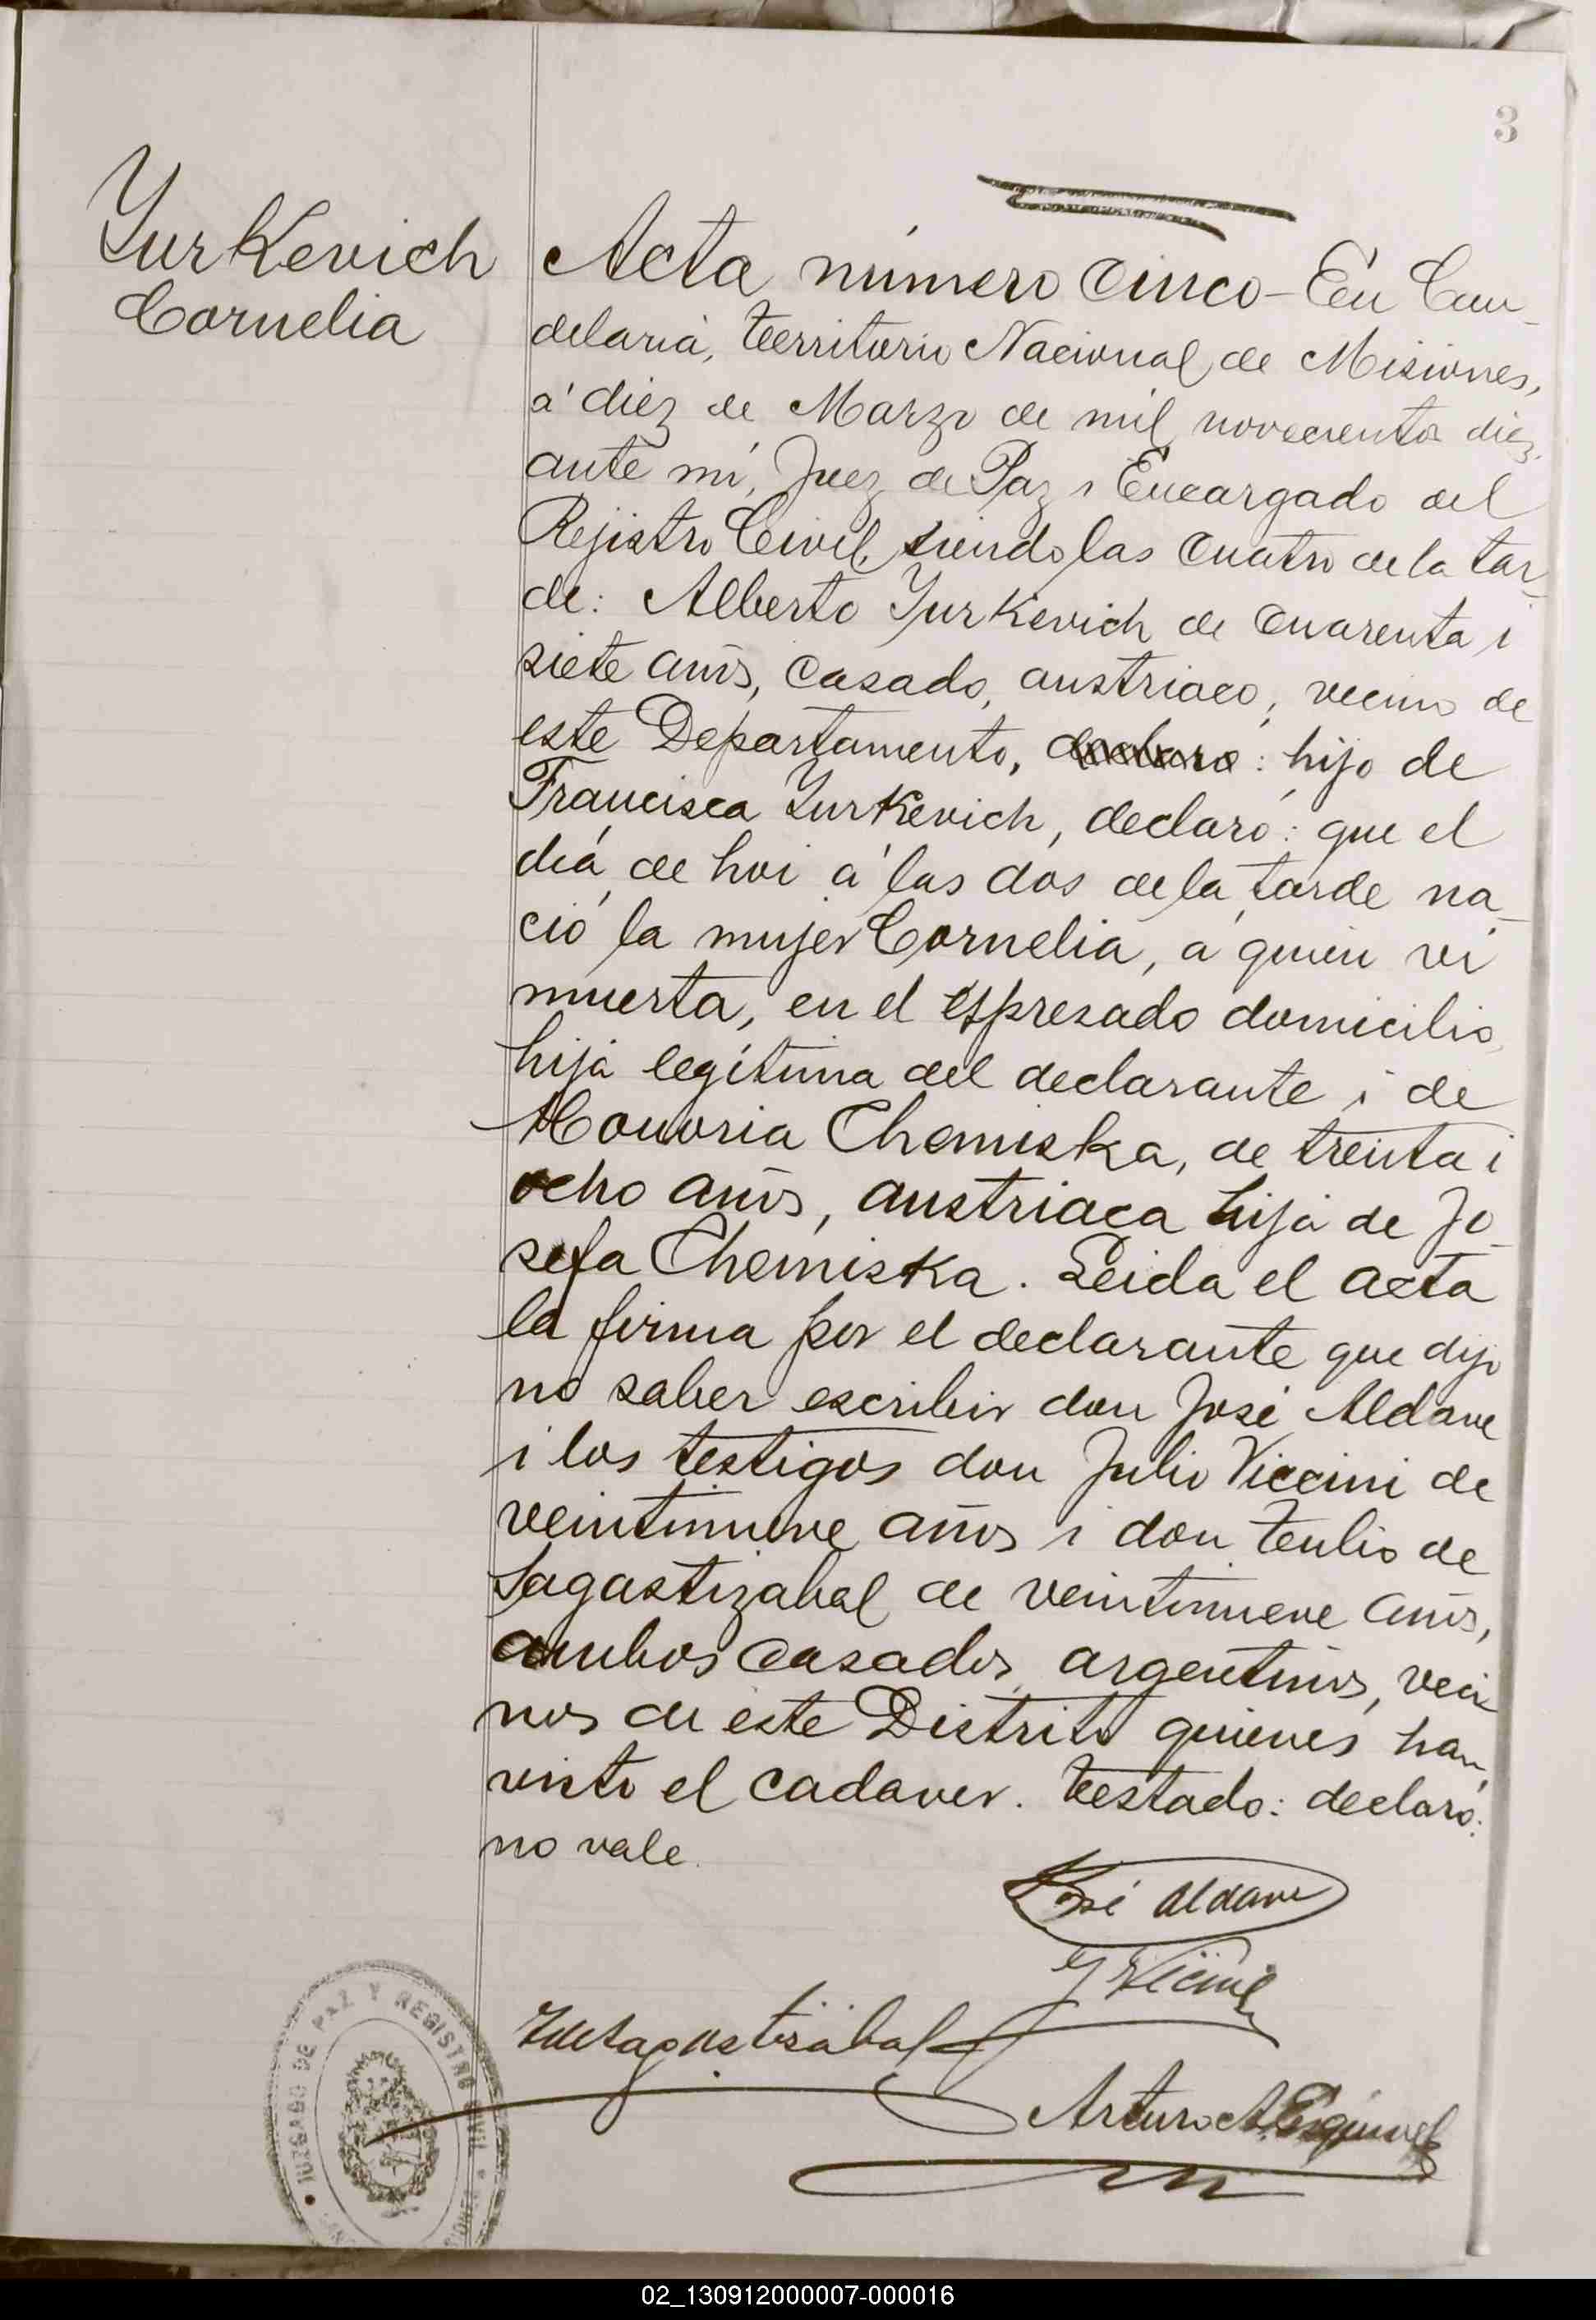 3
Yurkevich
Cornelia
Acta número cinco - En Can-
delaria, territorio Nacional de Misiones,
á diez de Marzo de mil novecientos diez,
ante mí, Juez de Paz i Encargado del
Rejistro Civil, siendo las cuatro de la tar-
de: Alberto Yurkevich de cuarenta i
siete años, casado, austriaco, vecino de
este Departamento, declaró: hijo de
Francisca Yurkevich, declaró: que el
día de hoi á las dos de la tarde na-
ció la mujer Cornelia, á quien vi
muerta, en el espresado domicilio,
hija legítima del declarante i de
Honoria Chemiska, de treinta i
ocho años, austriaca hija de Jo-
sefa Chemiska. Leida el acta
la firma por el declarante que dijo
no saber escribir don José Aldave
i los testigos don Julio Viccini de
veintinueve años i don Tulio de
Sagastizabal de veintinueve años,
ambos casados, argentinos, veci-
nos de este Distrito quienes han
visto el cadaver. Testado: declaró:
no vale.
José Aldave
J Viccini
T de Sagastizabal
Arturo A. Esquivel
JUZGADO DE PAZ Y REGISTRO CIVIL
02_130912000007-000016